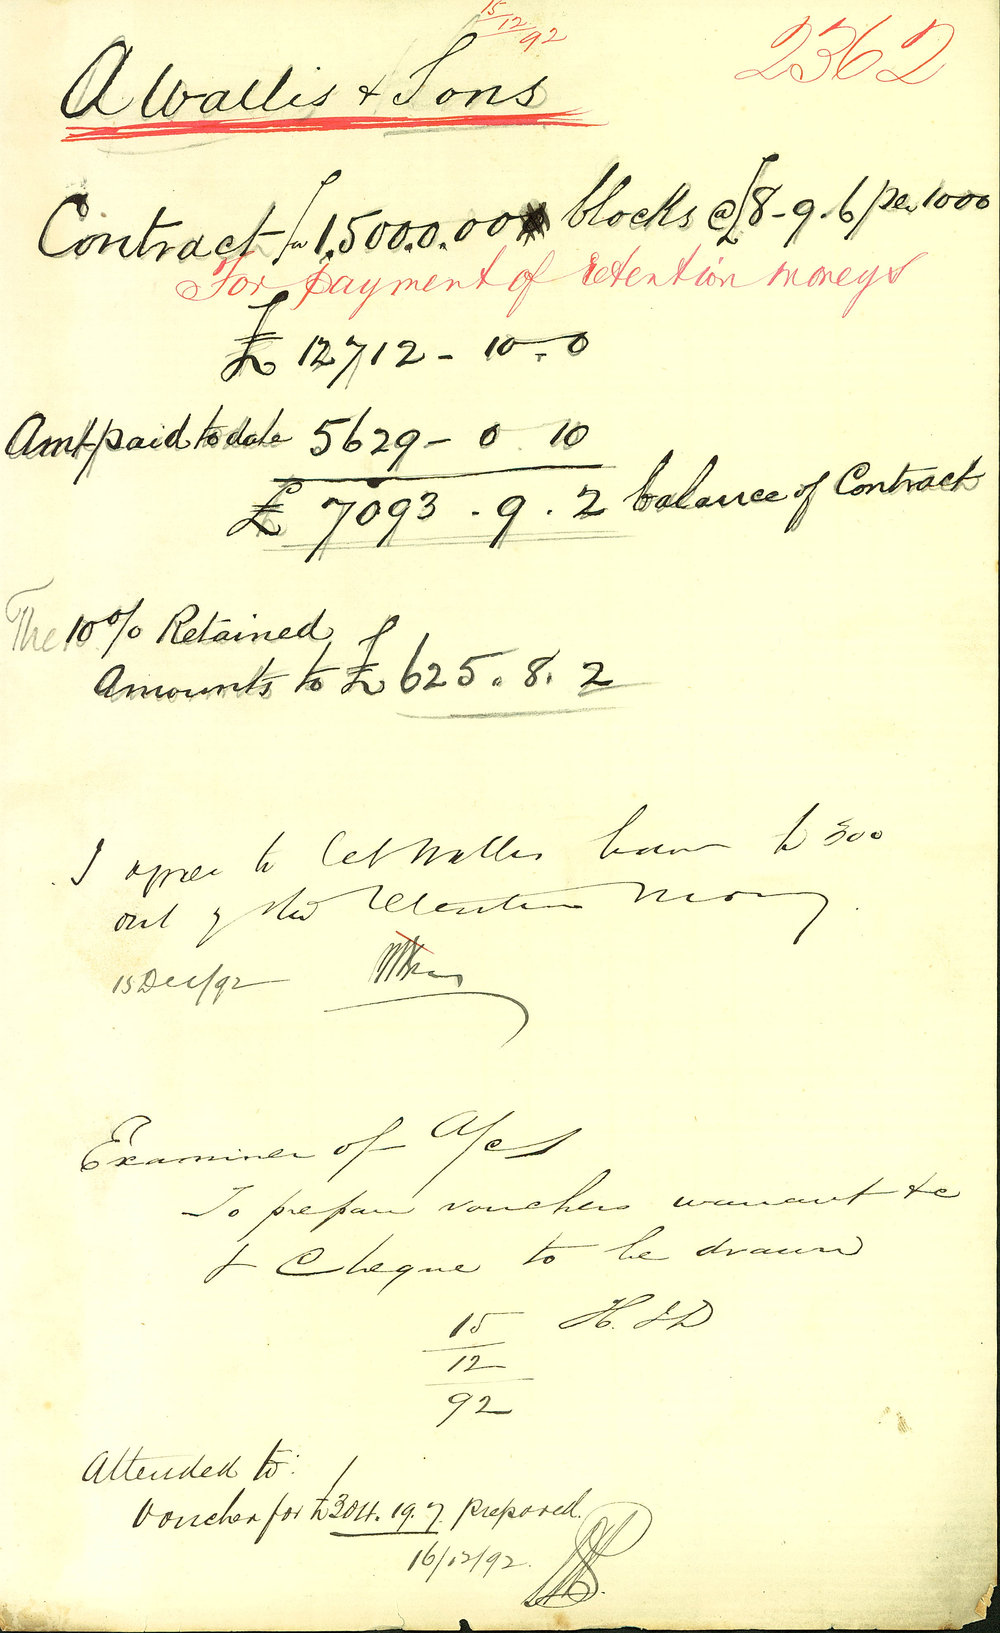 15/12/92
2362
A Wallis & Sons
Contract for 1,500,000 blocks @ £8-9-6 per 1000
For payment of retention moneys
£ 12712 - 10 - 0
Amt paid to date 5629 - 0 10
£ 7093 . 9 . 2 balance of Contract
The 10% Retained
Amounts to £ 625. 8. 2
I agree to let Wallis have £300
out of the Retention Money.
15 Dec/92
Examiner of A/cs
To prepare vouchers warrant &c
& Cheque to be drawn
15 H. J D
12
92
Attended to:
Voucher for £304. 19. 7. prepared.
16/12/92.